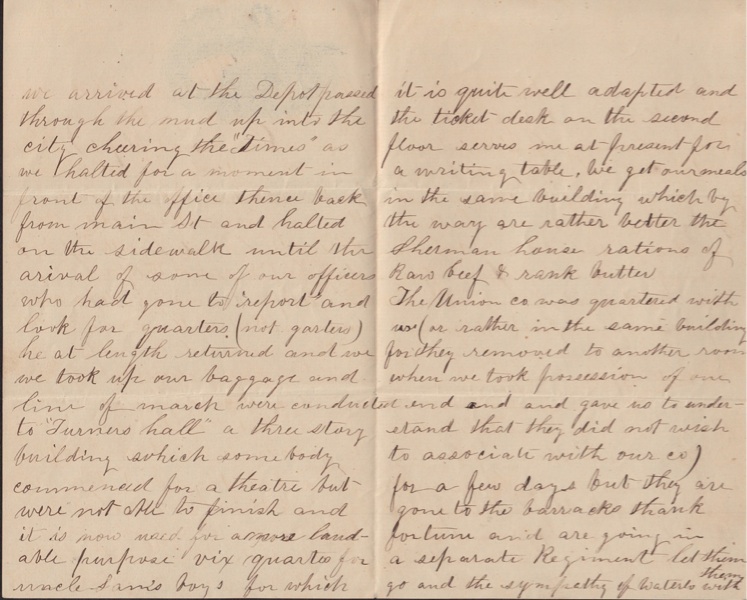 we arrived at the Depot passed
through the mud up into the
city cheering the "Times" as
we halted for a moment in
front of the office thence back
from main St and halted
on the sidewalk until the
arival of some of our officers
who had gone to "report" and
look for quarters (not garters)
he at length returned and we
we took up our baggage and
line of march were conducted
to "Turners hall" a three story
building which somebody
commenced for a theatre but
were not able to finish and
it is now used for a more laud-
able purpose vix quartes for
uncle Sam's boys for which
it is quite well adapted and
the ticket desk on the second
floor serves me at present for
a writing table. We get our meals
in the same building which by
the way are rather better the
Sherman house rations of
Raw beef & rank butter
The Union co was quartered with
us (or rather in the same building
for they removed to another room
when we took possecion of one
end and and gave us to under-
stand that they did not wish
to associate with our co)
for a few days but they are
gone to the barracks thank
fortune and are going in
a separate Regiment let them
go and the sympathy of Waterlo with
them